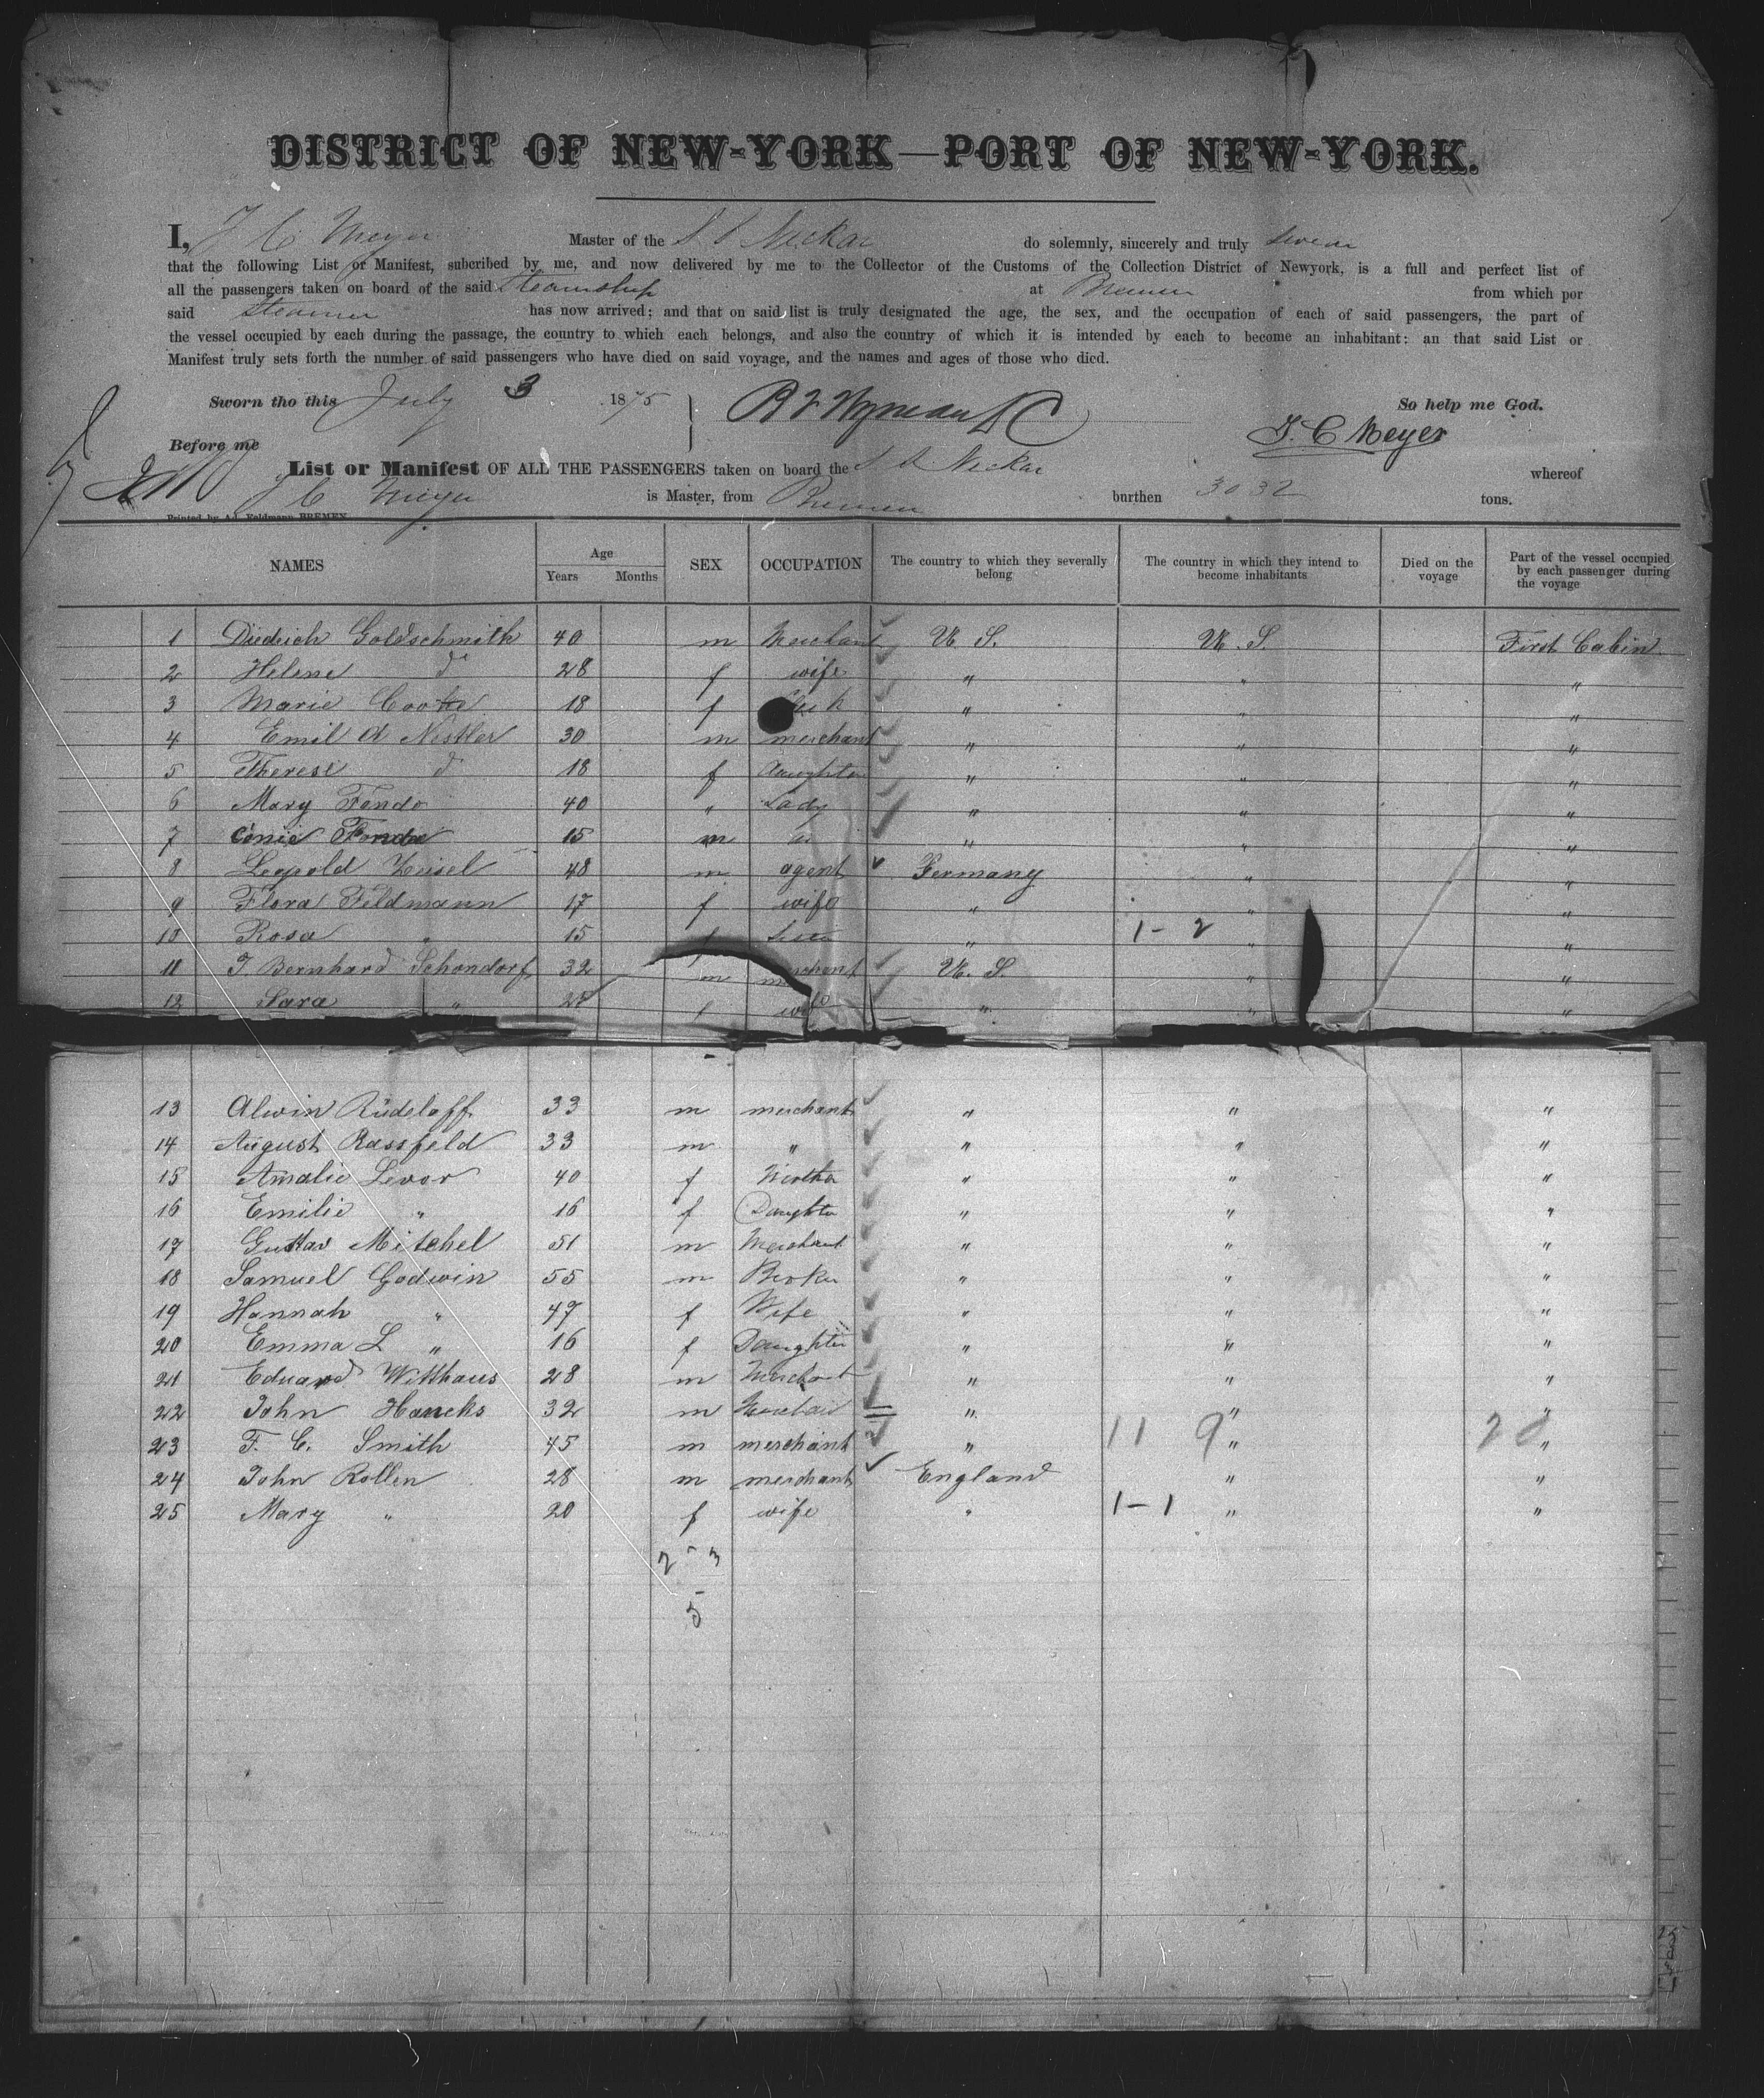 DISTRICT OF NEW-YORK—PORT OF NEW-YORK.
I, J C Meyer Master of the S S Neckar do solemnly, sincerely and truly swear
that the following List or Manifest, subcribed by me, and now delivered by me to the Collector of the Customs of the Collection District of Newyork, is a full and perfect list of
all the passengers taken on board of the said Steamship at Bremen from which por
said Steamer has now arrived; and that on said list is truly designated the age, the sex, and the occupation of each of said passengers, the part of
the vessel occupied by each during the passage, the country to which each belongs, and also the country of which it is intended by each to become an inhabitant: an that said List or
Manifest truly sets forth the number of said passengers who have died on said voyage, and the names and ages of those who died.
Sworn tho this July 3 1875 So help me God.
Before me J. C Meyer
List or Manifest OF ALL THE PASSENGERS taken on board the S S Neckar whereof
J C Meyer is Master, from Bremen burthen 3032 tons.
Printed by Ad. Feldmann BREMEN
NAMES Age Years Months SEX OCCUPATION The country to which they severally belong The country in which they intend to become inhabitants Died on the voyage Part of the vessel occupied by each passenger during the voyage
1 Diedrich Goldschmith 40 m Merchant U. S. U. S. First Cabin
2 Helene do 28 f wife " " "
3 Marie 18 f " " "
4 Emil A Nestler 30 m merchant " " "
5 Therese do 18 f daughter " " "
6 Mary Fendo 40 " Lady " " "
7 15 m " " "
8 Leopold Zeisel 48 m agent Germany " "
9 Flora Feldmann 17 f wife " " "
10 Rosa " 15 f Sister " 1 - 2 " "
11 J Bernhard Schondorf 32 m merchant U. S. " "
12 Sara " 28 f wife " " "
13 Alwin Rüdeloff 33 m merchant " " "
14 August Rassfeld 33 m " " " "
15 Amalie Levor 40 f Mother " " "
16 Emilie " 16 f Daughter " " "
17 Gustav Mitchel 51 m Merchant " " "
18 Samuel Godwin 55 m Broker " " "
19 Hannah " 47 f Wife " " "
20 Emma L " 16 f Daughter " " "
21 Eduard Witthaus 28 m Merchant " " "
22 John Hancks 32 m " " "
23 F. C. Smith 45 m merchant " 11 9 " 20 "
24 John Rollen 28 m merchant England " "
25 Mary " 20 f wife " 1 - 1 " "
2 - 3
5